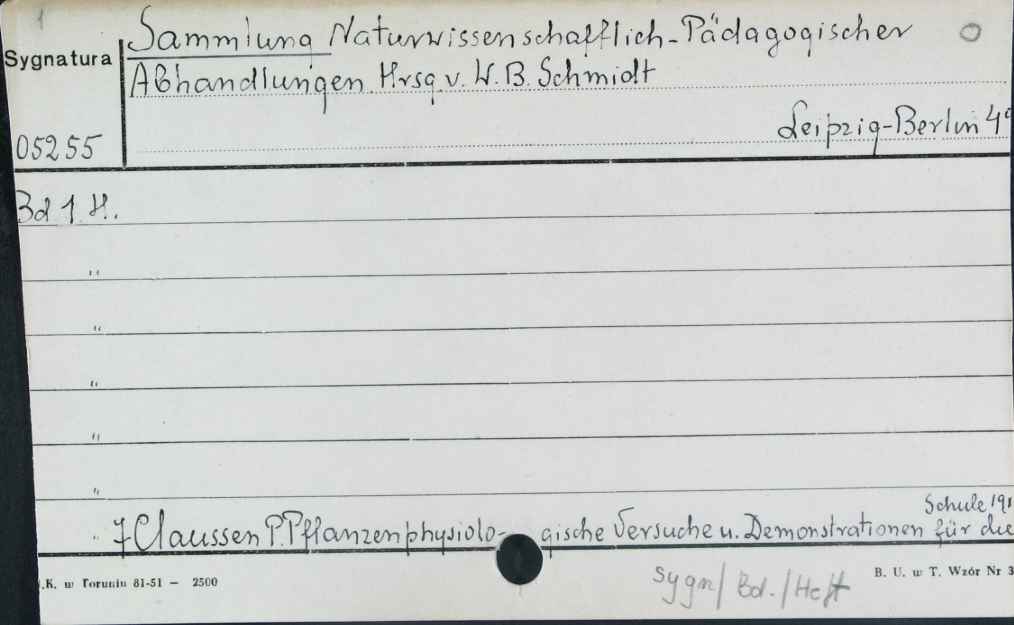 1
Sammlung Naturwissenschafflich-Pädagogischer
Sygnatura
Abhandlungen Hrsg. v. W. B. Schmidt
Leipzig-Berlin 4°
05255
Bd 1 H.
"
"
"
"
"
Schule 191
" 7 Claussen P. Pflanzenphysiolo- gische Versuche u. Demonstrationen für die
.K. w Toruniu 81-51 — 2500
Sygn/ Bd./ Heft
B. U. w T. Wzór Nr 3